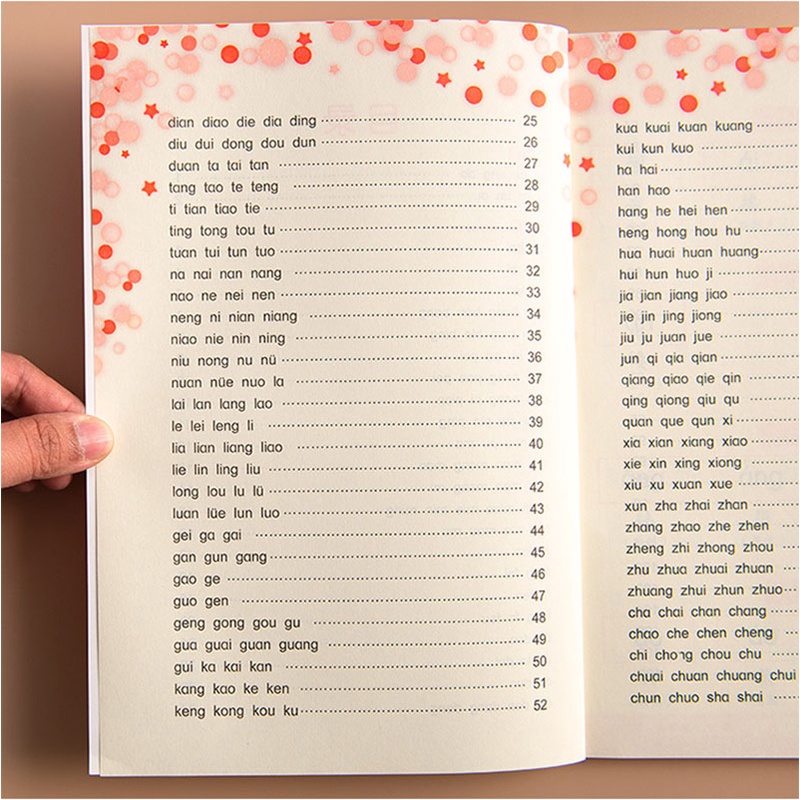 dian diao die dia ding 25
diu dui dong dou dun 26
duan ta tai tan 27
tang tao te teng 28
ti tian tiao tie 29
ting tong tou tu 30
tuan tui tun tuo 31
na nai nan nang 32
nao ne nei nen 33
neng ni nian niang 34
niao nie nin ning 35
niu nong nu nü 36
nuan nüe nuo la 37
lai lan lang lao 38
le lei leng li 39
lia lian liang liao 40
lie lin ling liu 41
long lou lu lü 42
luan lüe lun luo 43
gei ga gai 44
gan gun gang 45
gao ge 46
guo gen 47
geng gong gou gu 48
gua guai guan guang 49
gui ka kai kan 50
kang kao ke ken 51
keng kong kou ku 52
kua kuai kuan kuang
kui kun kuo
ha hai
han hao
hang he hei hen
heng hong hou hu
hua huai huan huang
hui hun huo ji
jia jian jiang jiao
jie jin jing jiong
jiu ju juan jue
jun qi qia qian
qiang qiao qie qin
qing qiong qiu qu
quan que qun xi
xia xian xiang xiao
xie xin xing xiong
xiu xu xuan xue
xun zha zhai zhan
zhang zhao zhe zhen
zheng zhi zhong zhou
zhu zhua zhuai zhuan
zhuang zhui zhun zhuo
cha chai chan chang
chao che chen cheng
chi chong chou chu
chuai chuan chuang chui
chun chuo sha shai